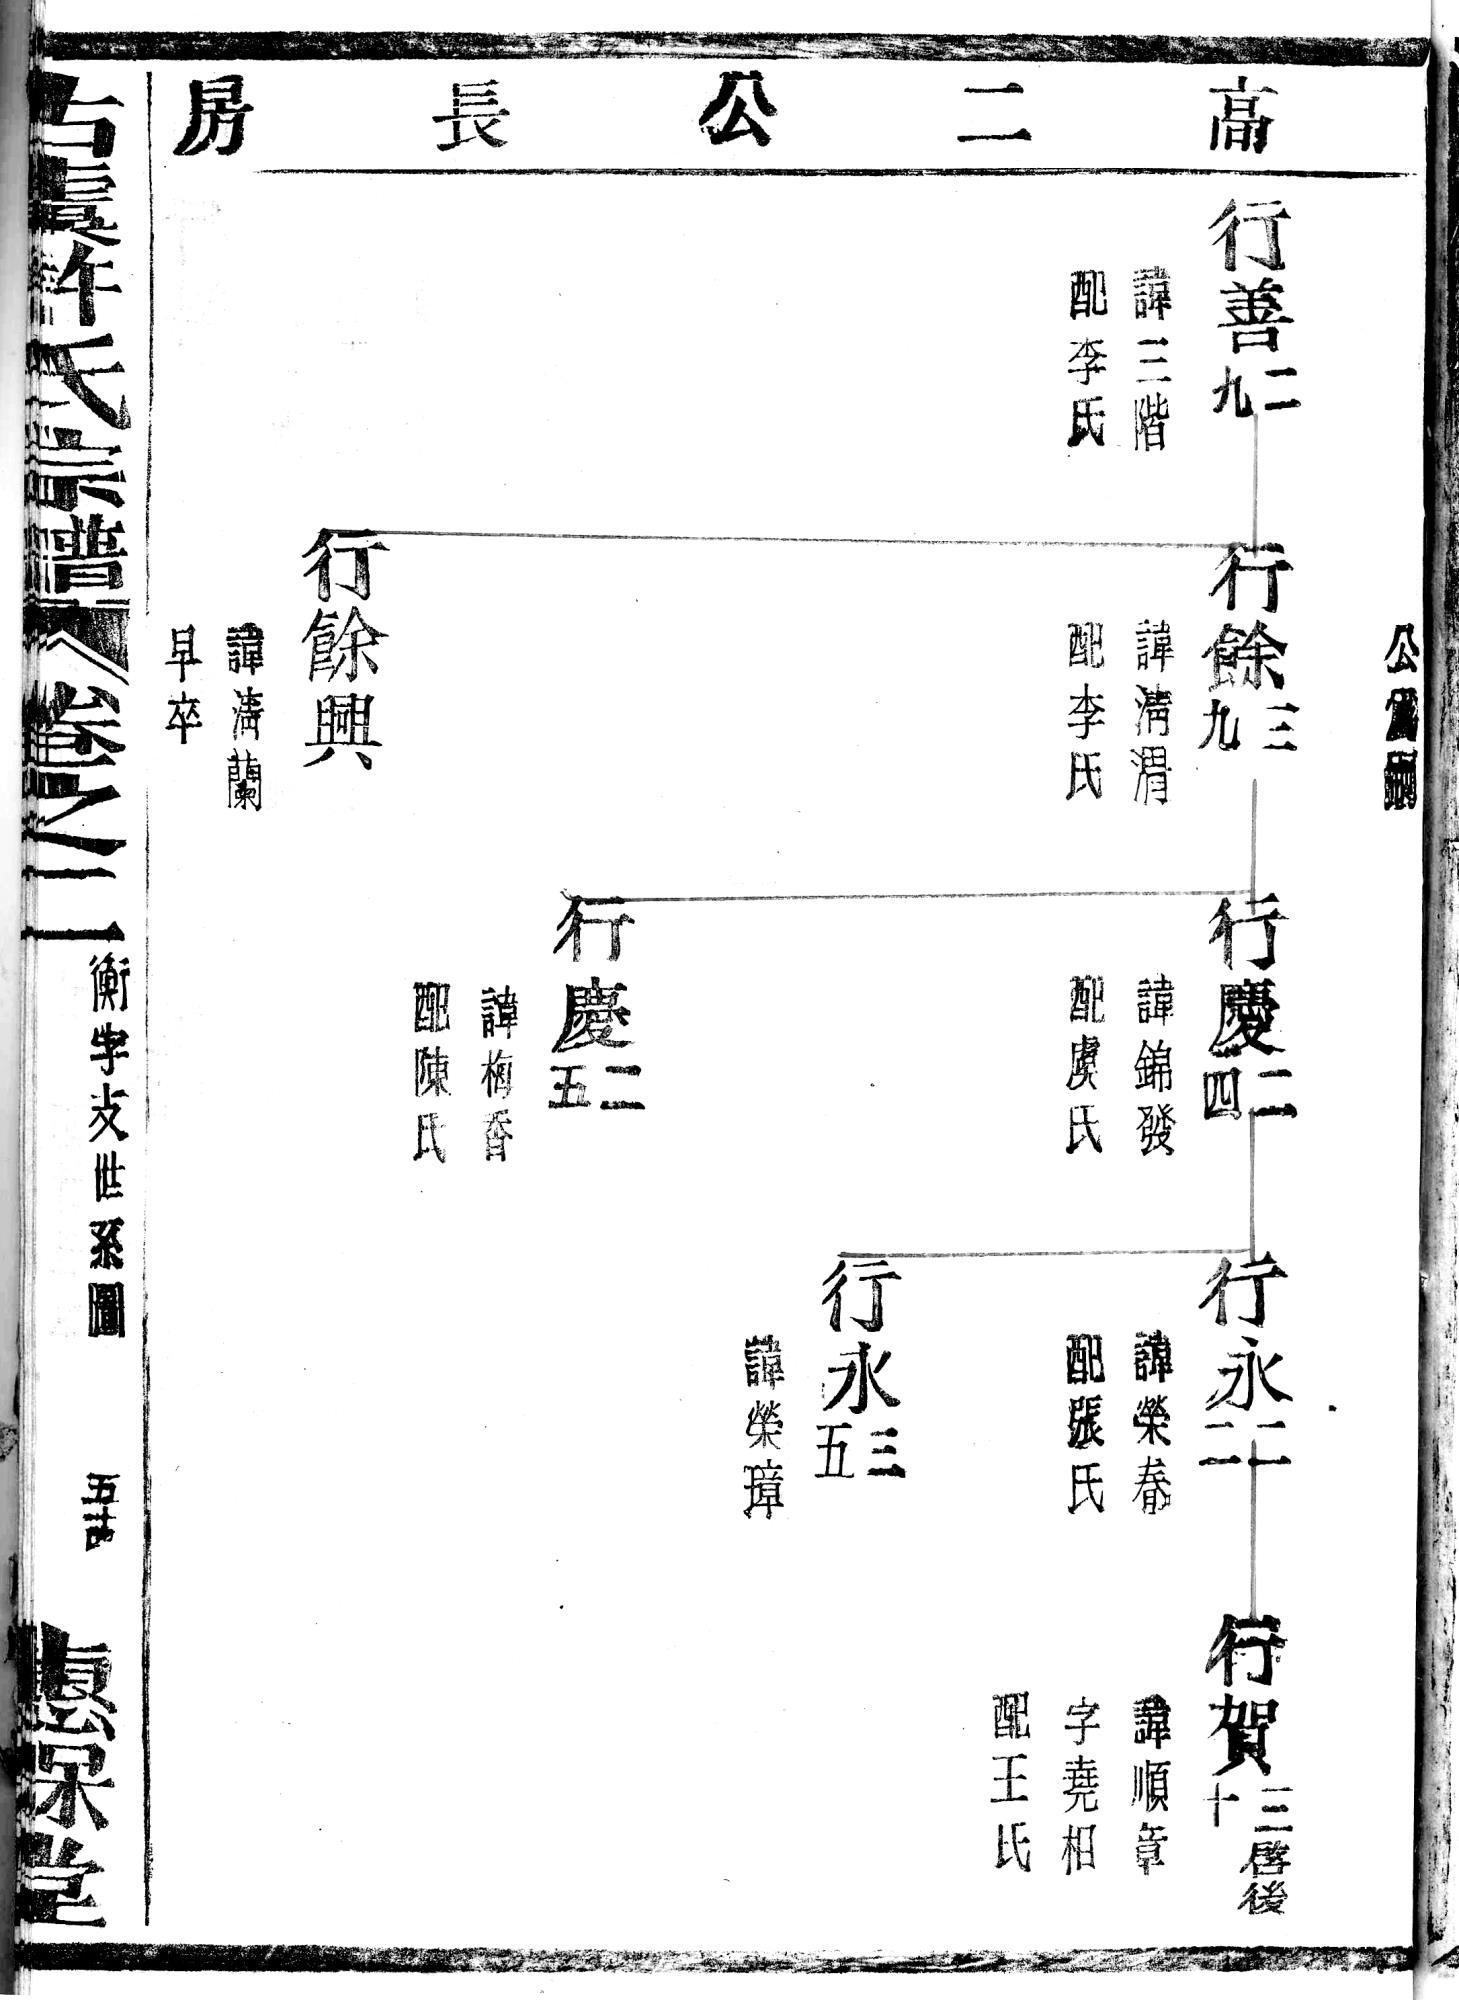 高二公長房
行善二九
諱三階
配李氏
行餘三九
諱清渭
配李氏
行餘興
諱清蘭
早卒
行慶二四
諱錦發
配虞氏
行慶二五
諱梅香
配陳氏
行永二二
諱榮春
配張氏
行永三五
諱榮璋
行賀三十
啓後
諱順章
字堯相
配王氏
古虞許氏宗譜
卷之二
衡字支世系圖
惠保堂